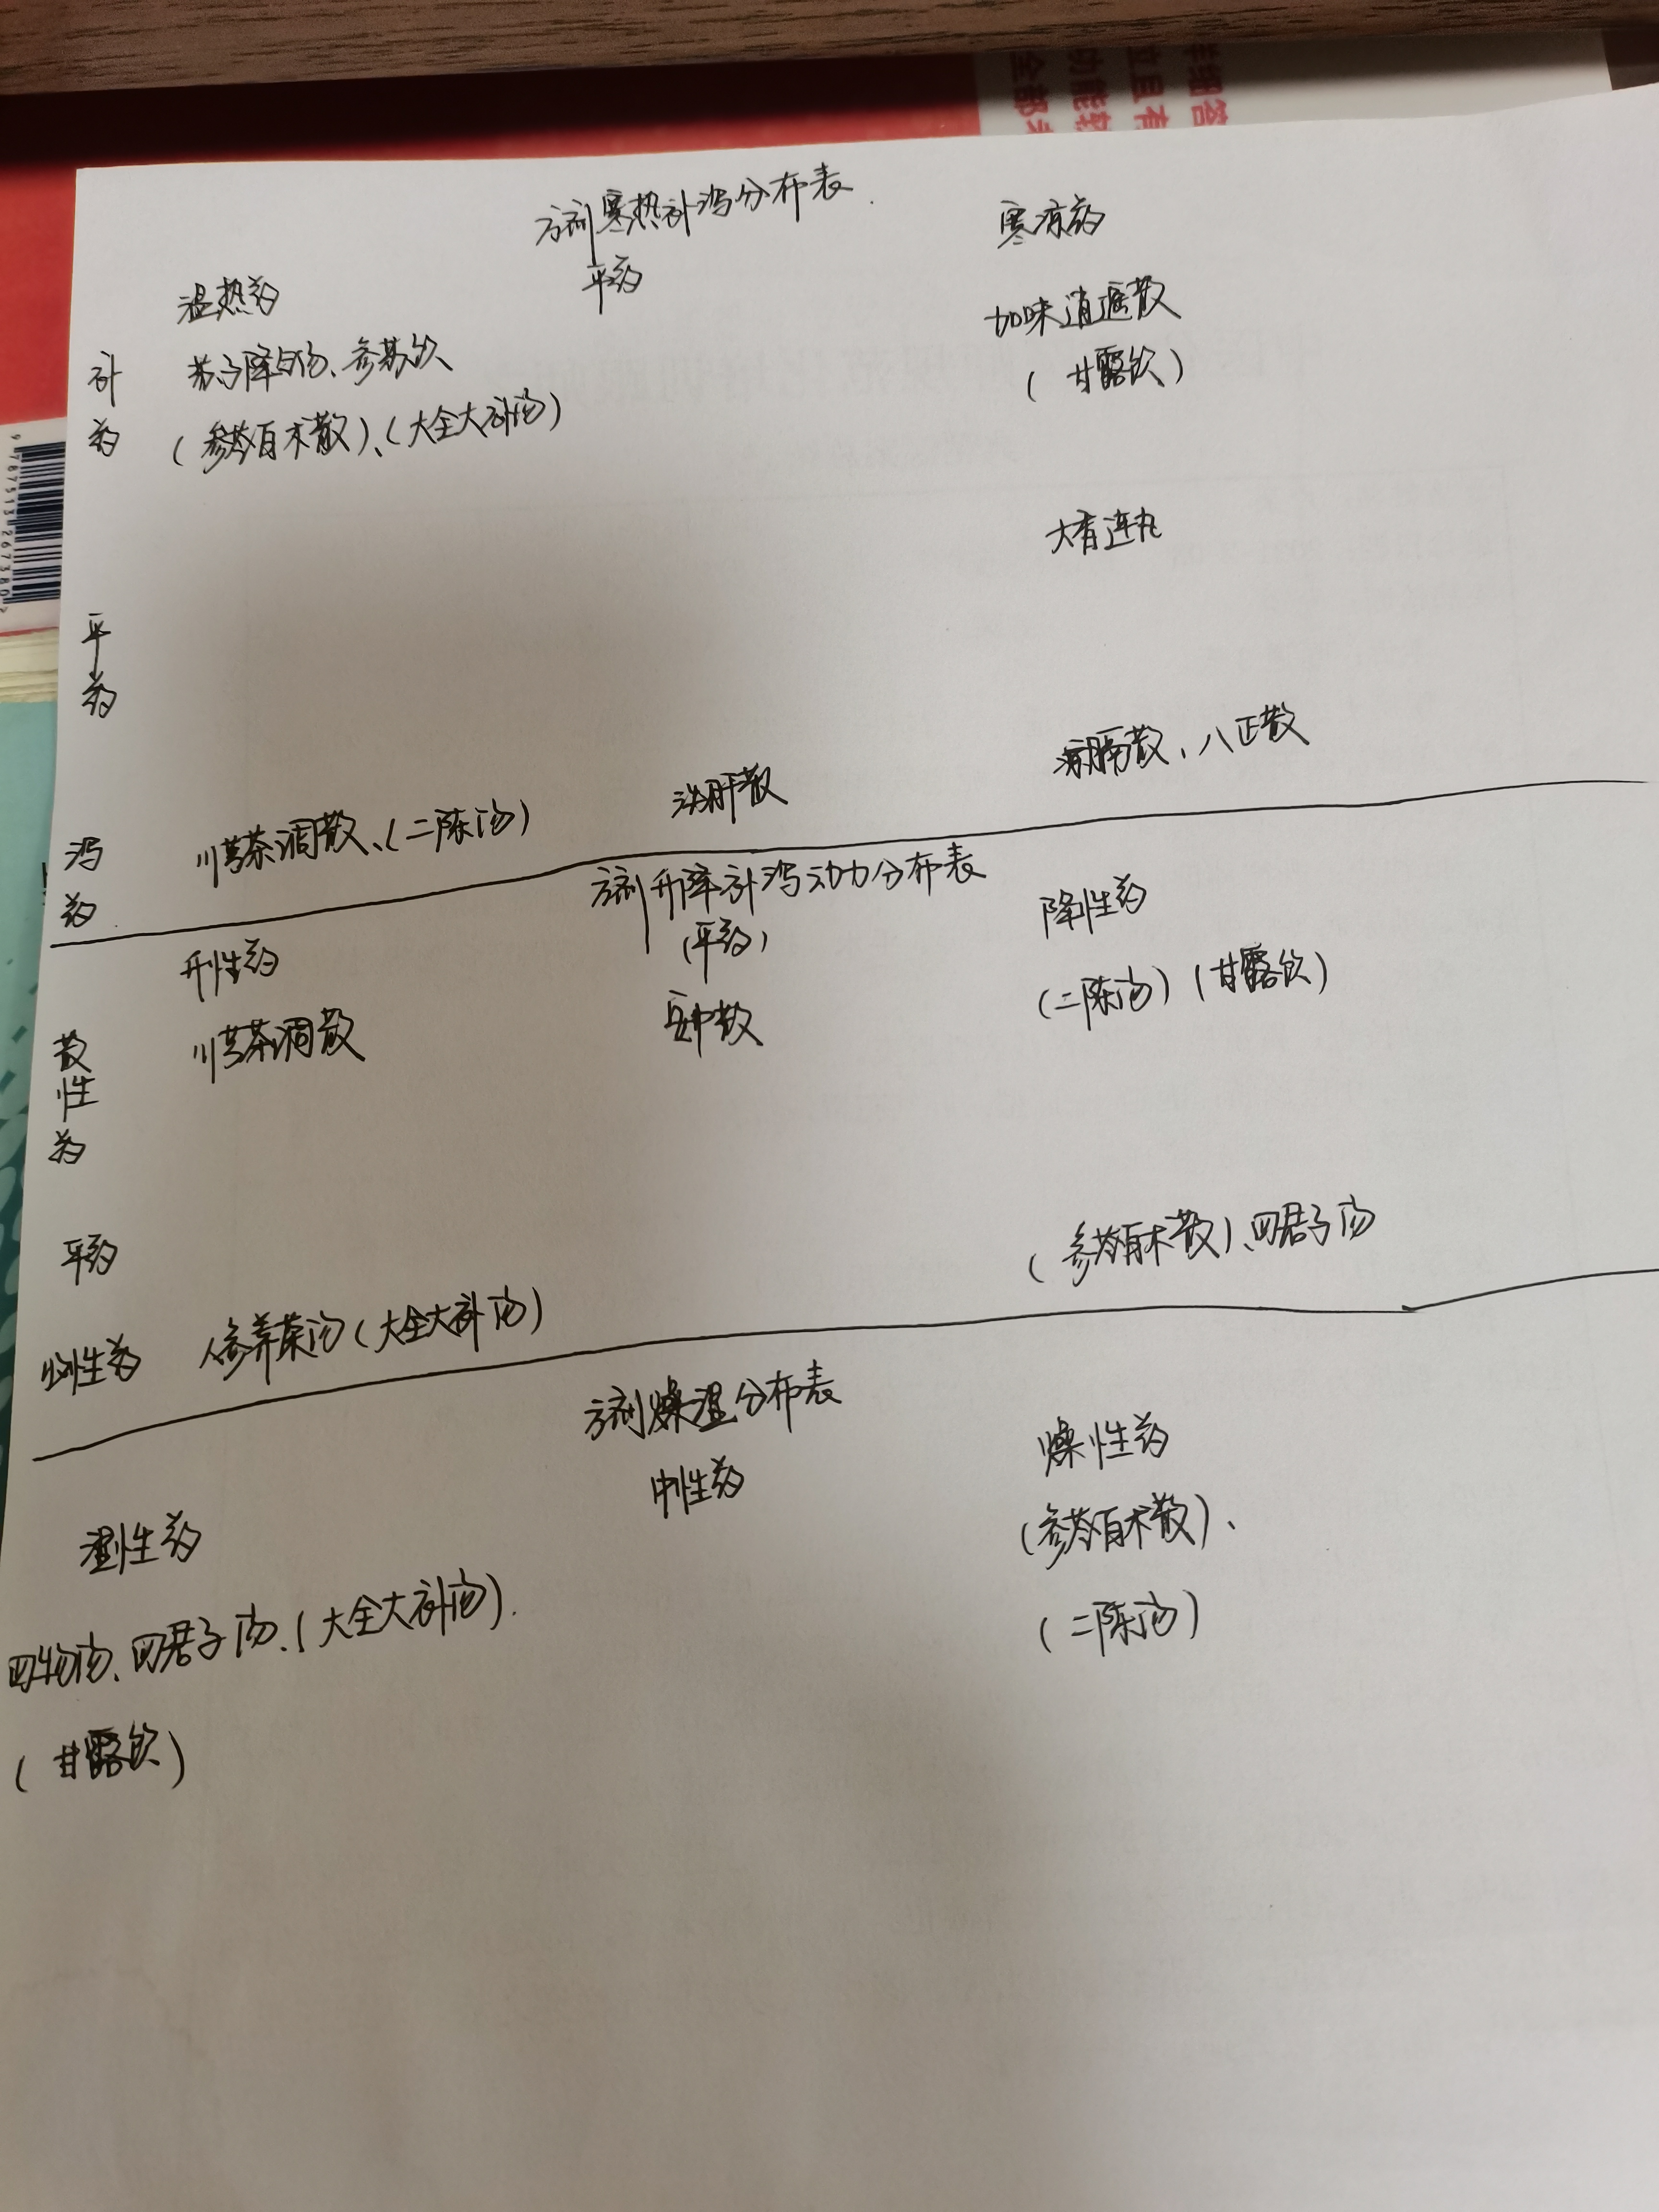 方剂寒热补泻分布表
温热药 平药 寒凉药
补药 苏子降气汤、参苏饮 加味逍遥散
(参苓白术散)、(大全大补汤) (甘露饮)
平药 大香连丸
泻药 川芎茶调散、(二陈汤) 洗肝散 凉膈散、八正散
方剂升降补泻动力分布表
升性药 (平药) 降性药
散性药 川芎茶调散 安中散 (二陈汤)(甘露饮)
平药 (参苓白术散)、四君子汤
性药 人参养荣汤(大全大补汤)
方剂燥湿分布表
湿性药 中性药 燥性药
四物汤、四君子汤、(大全大补汤). (参苓白术散)、
(甘露饮) (二陈汤)
9787513267380